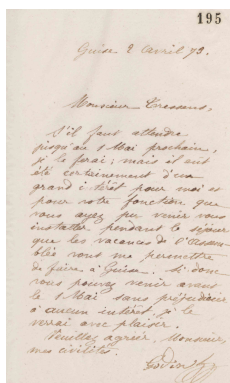 195
Guise 2 Avril 73.
Monsieur
S'il faut attendre
jusqu'au 1 Mai prochain,
je le ferai; mais il eut
été certainement d'un
grand intérêt pour moi et
pour votre fonction que
vous ayez pu venir vous
installer pendant le séjour
que les vacances de l'Assem
blée vous me permettre
de faire à Guise. Si donc
vous pouvez venir avant
le 1 Mai sans préjudicier
à aucun intérêt, je le
verrai avec plaisir.
Veuillez agréer, Monsieur,
mes civilités.
Godin